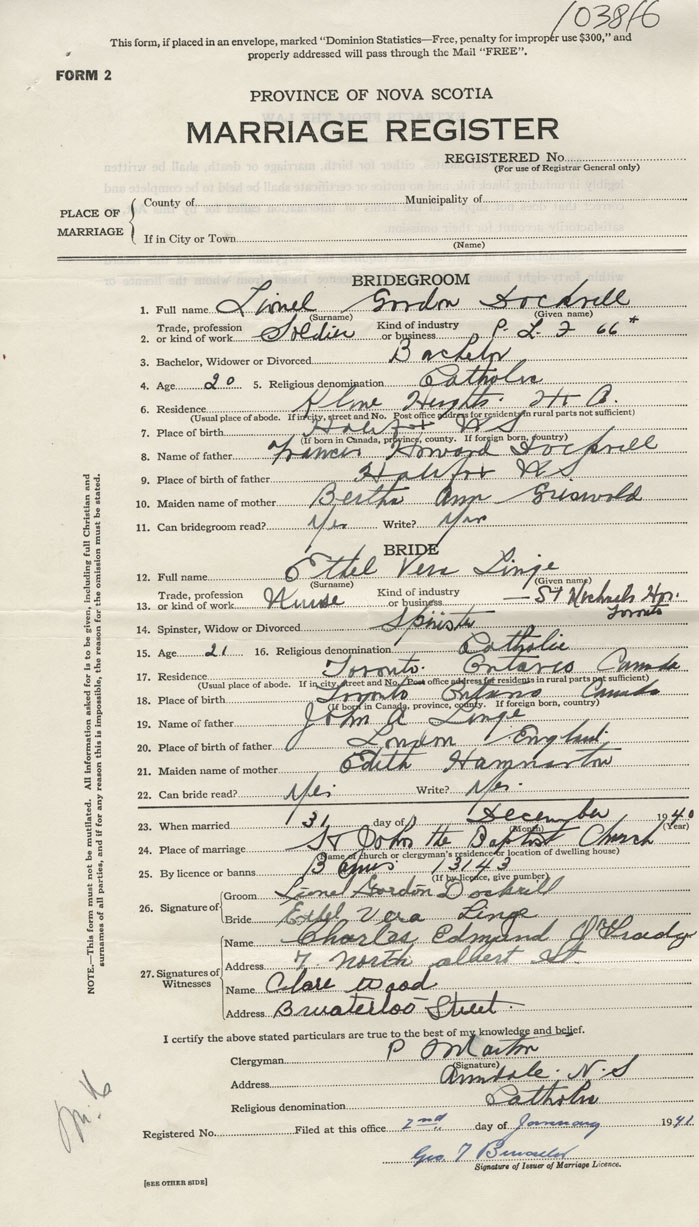 103816
This form, if placed in an envelope, marked "Dominion Statistics—Free, penalty for improper use $300," and
properly addressed will pass through the Mail "FREE".
FORM 2
PROVINCE OF NOVA SCOTIA
MARRIAGE REGISTER
REGISTERED No.
(For use of Registrar General only)
PLACE OF MARRIAGE
County of Municipality of
If in City or Town
(Name)
BRIDEGROOM
1. Full name Lionel Gordon Dockrill
(Surname) (Given name)
2. Trade, profession or kind of work Soldier Kind of industry or business P. L. F 66
3. Bachelor, Widower or Divorced Bachelor
4. Age 20 5. Religious denomination Catholic
6. Residence Kline Heights
(Usual place of abode. If in city, street and No. Post office address for residents in rural parts not sufficient)
7. Place of birth Halifax N S
(If born in Canada, province, county. If foreign born, country)
8. Name of father Francis Howard Dockrill
9. Place of birth of father Halifax N S
10. Maiden name of mother Bertha Ann Griswold
11. Can bridegroom read? Yes Write? Yes
BRIDE
12. Full name Ethel Vera Linge
(Surname) (Given name)
13. Trade, profession or kind of work Nurse Kind of industry or business — St Michaels Hos. Toronto
14. Spinster, Widow or Divorced Spinster
15. Age 21 16. Religious denomination Catholic
17. Residence Toronto. Ontario Canada
(Usual place of abode. If in city, street and No. Post office address for residents in rural parts not sufficient)
18. Place of birth Toronto Ontario Canada
(If born in Canada, province, county. If foreign born, country)
19. Name of father John A Linge
20. Place of birth of father London England.
21. Maiden name of mother Edith
22. Can bride read? Yes Write? Yes.
23. When married 31 day of December 1940
(Month) (Year)
24. Place of marriage St John the Baptist Church
(Name of church or clergyman's residence or location of dwelling house)
25. By licence or banns 13143
(If by licence, give number)
26. Signature of
Groom Lionel Gordon Dockrill
Bride Ethel Vera Linge
27. Signatures of Witnesses
Name Charles Edmund
Address 7 North albert St.
Name Clare Wood
Address Bwaterloo Street.
I certify the above stated particulars are true to the best of my knowledge and belief.
Clergyman P Martin
(Signature)
Address Armdale. N. S
Religious denomination Catholic
Registered No. Filed at this office 2nd day of January 1941
Geo T
Signature of Issuer of Marriage Licence.
[SEE OTHER SIDE]
NOTE.—This form must not be mutilated. All information asked for is to be given, including full Christian and
surnames of all parties, and if for any reason this is impossible, the reason for the omission must be stated.